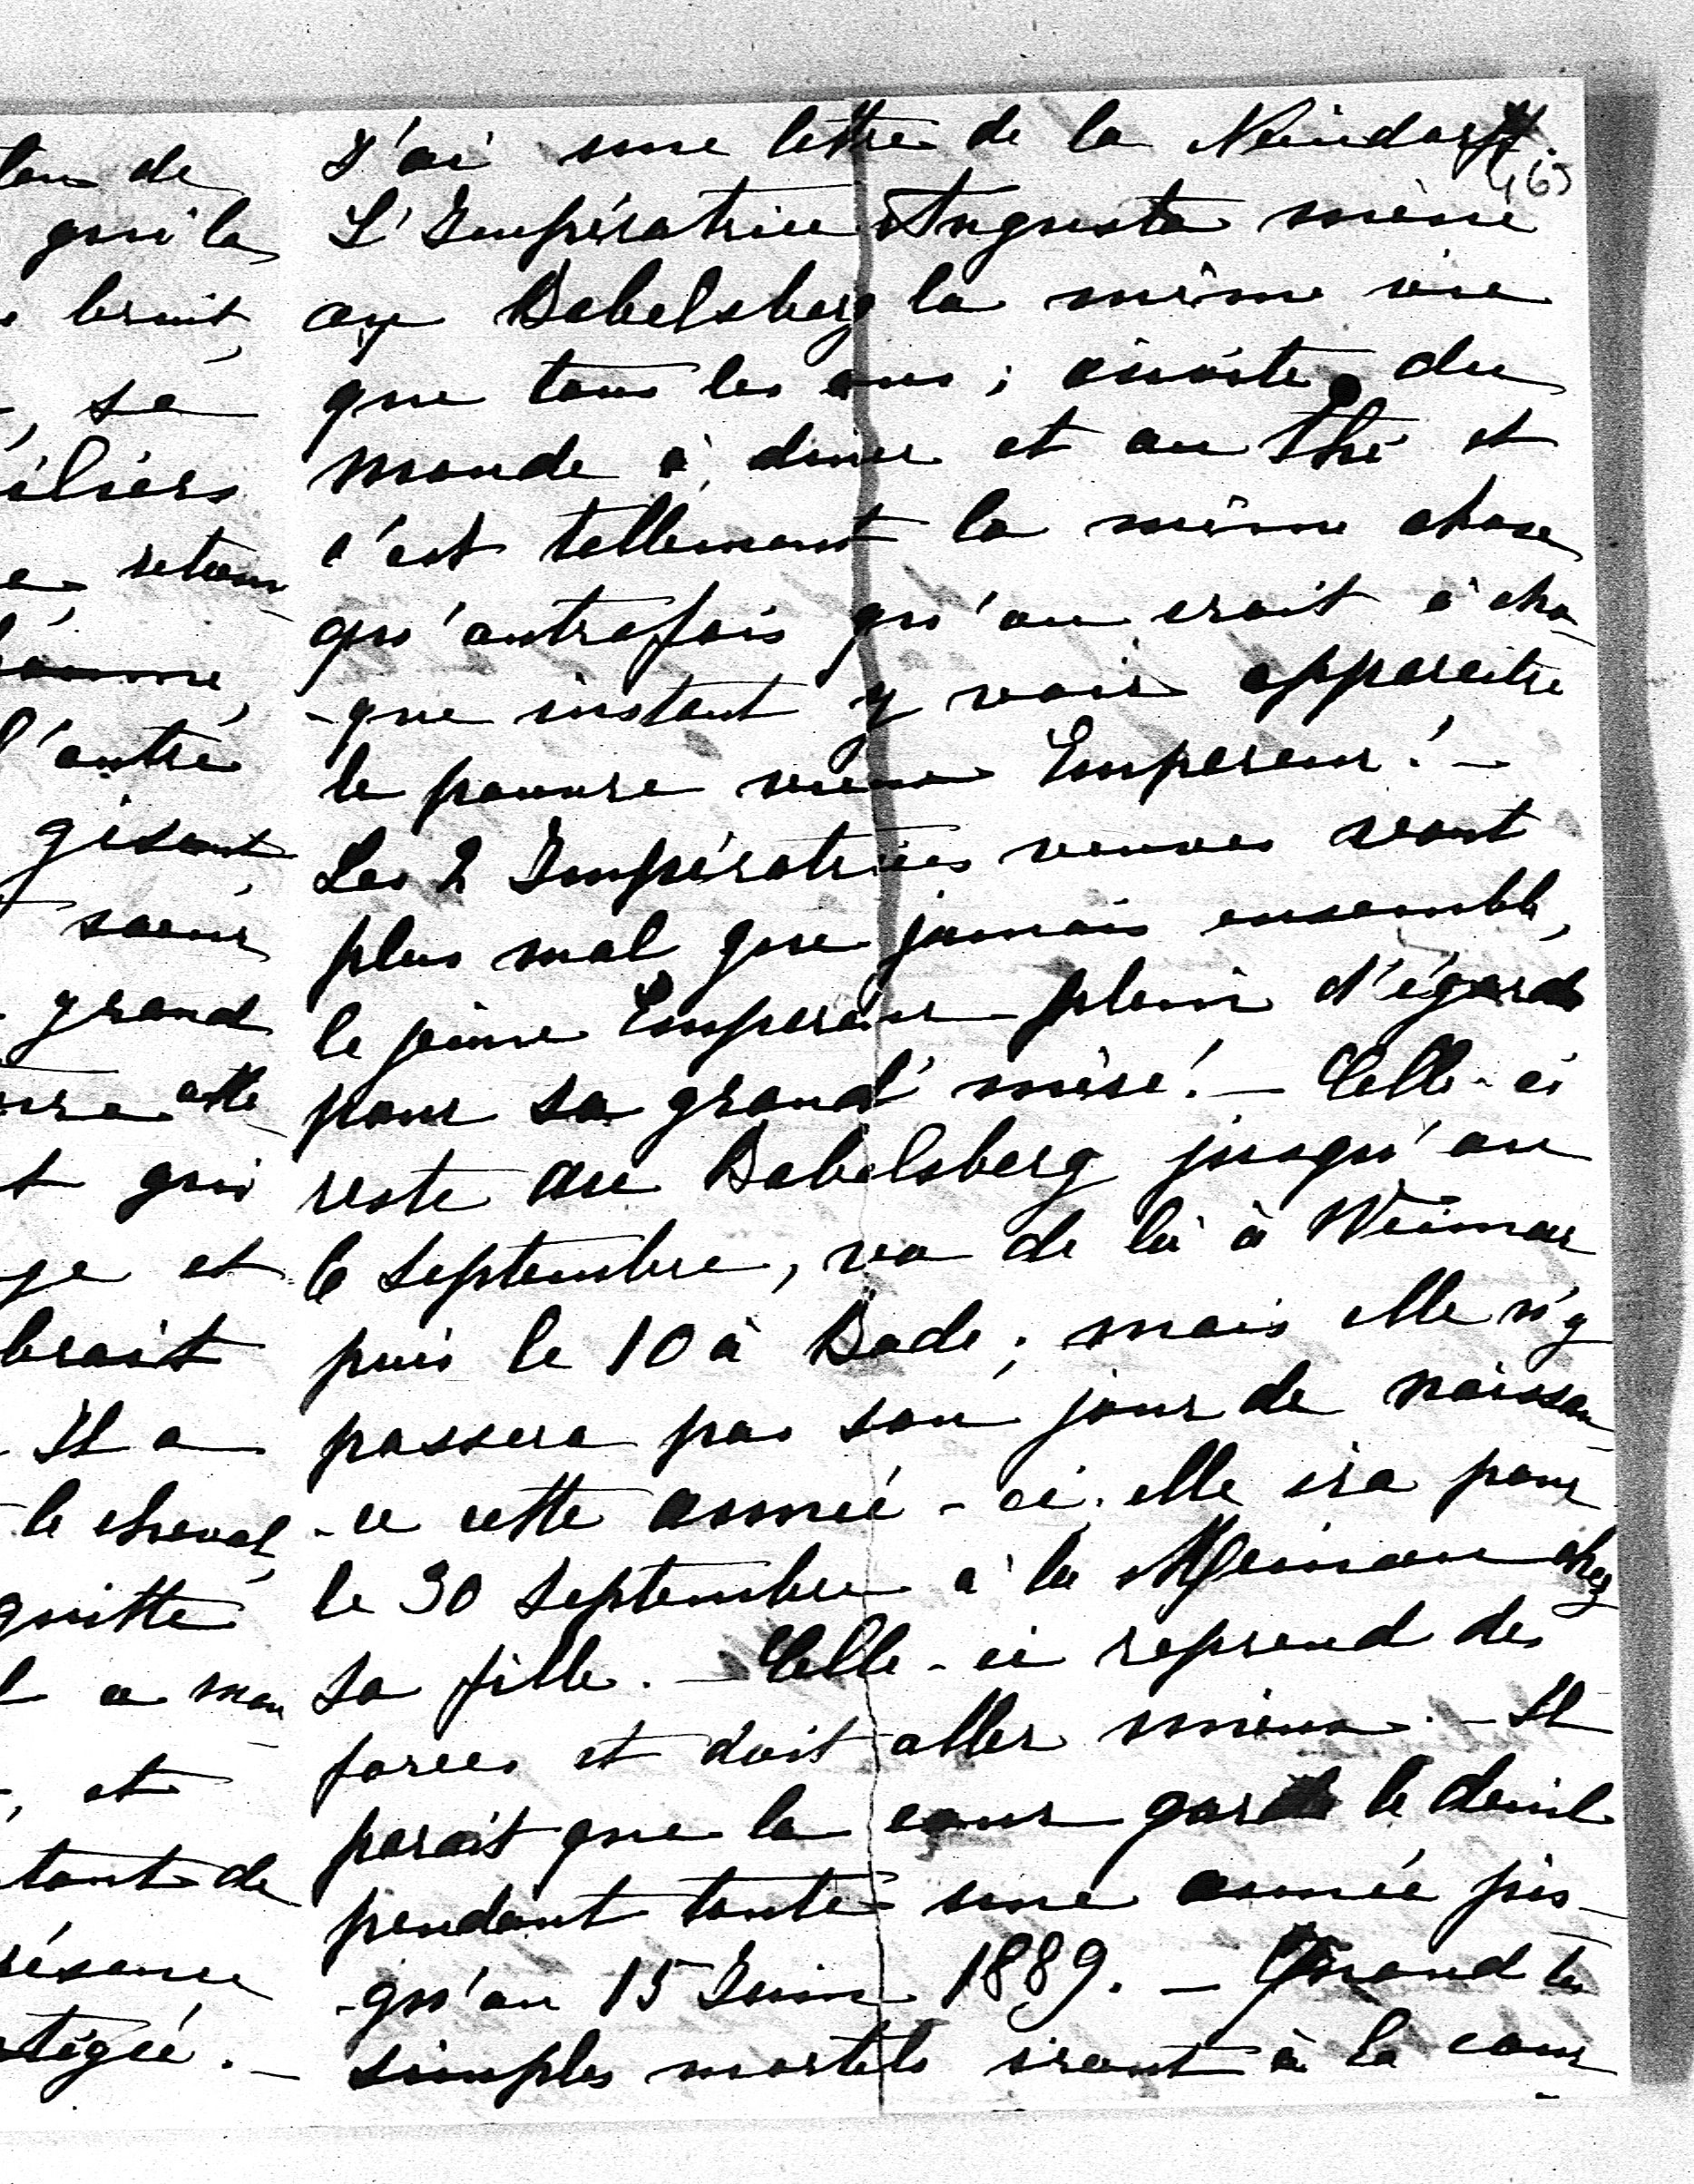 tou de
qui la
bruit,
, se
iliers
retour
l'autre
gisant,
soeur
grand
t qui
ge et
brait
Il a
le cheval,
quitte
et
tant de
J'ai une lettre de la Neindorff.
465
L'Impératrice Augusta mène
au Babelsberg la même vie
que tous les ans ; invite du
monde à diner et au thé et
c'est tellement la même chose
qu'autrefois qu'on croit à cha-
-que instant y voir apparaitre
le pauvre vieux Empereur ! –
Les 2 Impératrices veuves sont
plus mal que jamais ensemble,
le jeune Empereur plein d'égards
pour sa grand' mère ! – Celle-ci
reste au Babelsberg jusqu'au
6 Septembre, va de là à Weimar
puis le 10 à Bade ; mais elle n'y
passera pas son jour de naissan-
-ce cette année-ci. elle ira pour
le 30 Septembre à la Meinau chez
sa fille. – Celle-ci reprend des
forces et doit aller mieux. – Il
parait que la cour garde le deuil
pendant toute une année jus-
-qu'au 15 Juin 1889. – Quand les
simples mortels iront à la cour